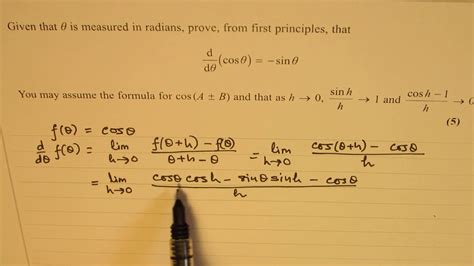 Given that θ is measured in radians, prove, from first principles, that
d/dθ (cos θ) = −sin θ
You may assume the formula for cos (A ± B) and that as h → 0, sin h / h → 1 and cos h − 1 / h → 0
(5)
f(θ) = cosθ
d/dθ f(θ) = lim h→0 f(θ+h) − f(θ) / θ+h − θ = lim h→0 cos(θ+h) − cosθ / h
= lim h→0 cosθ cosh − sinθ sinh − cosθ / h